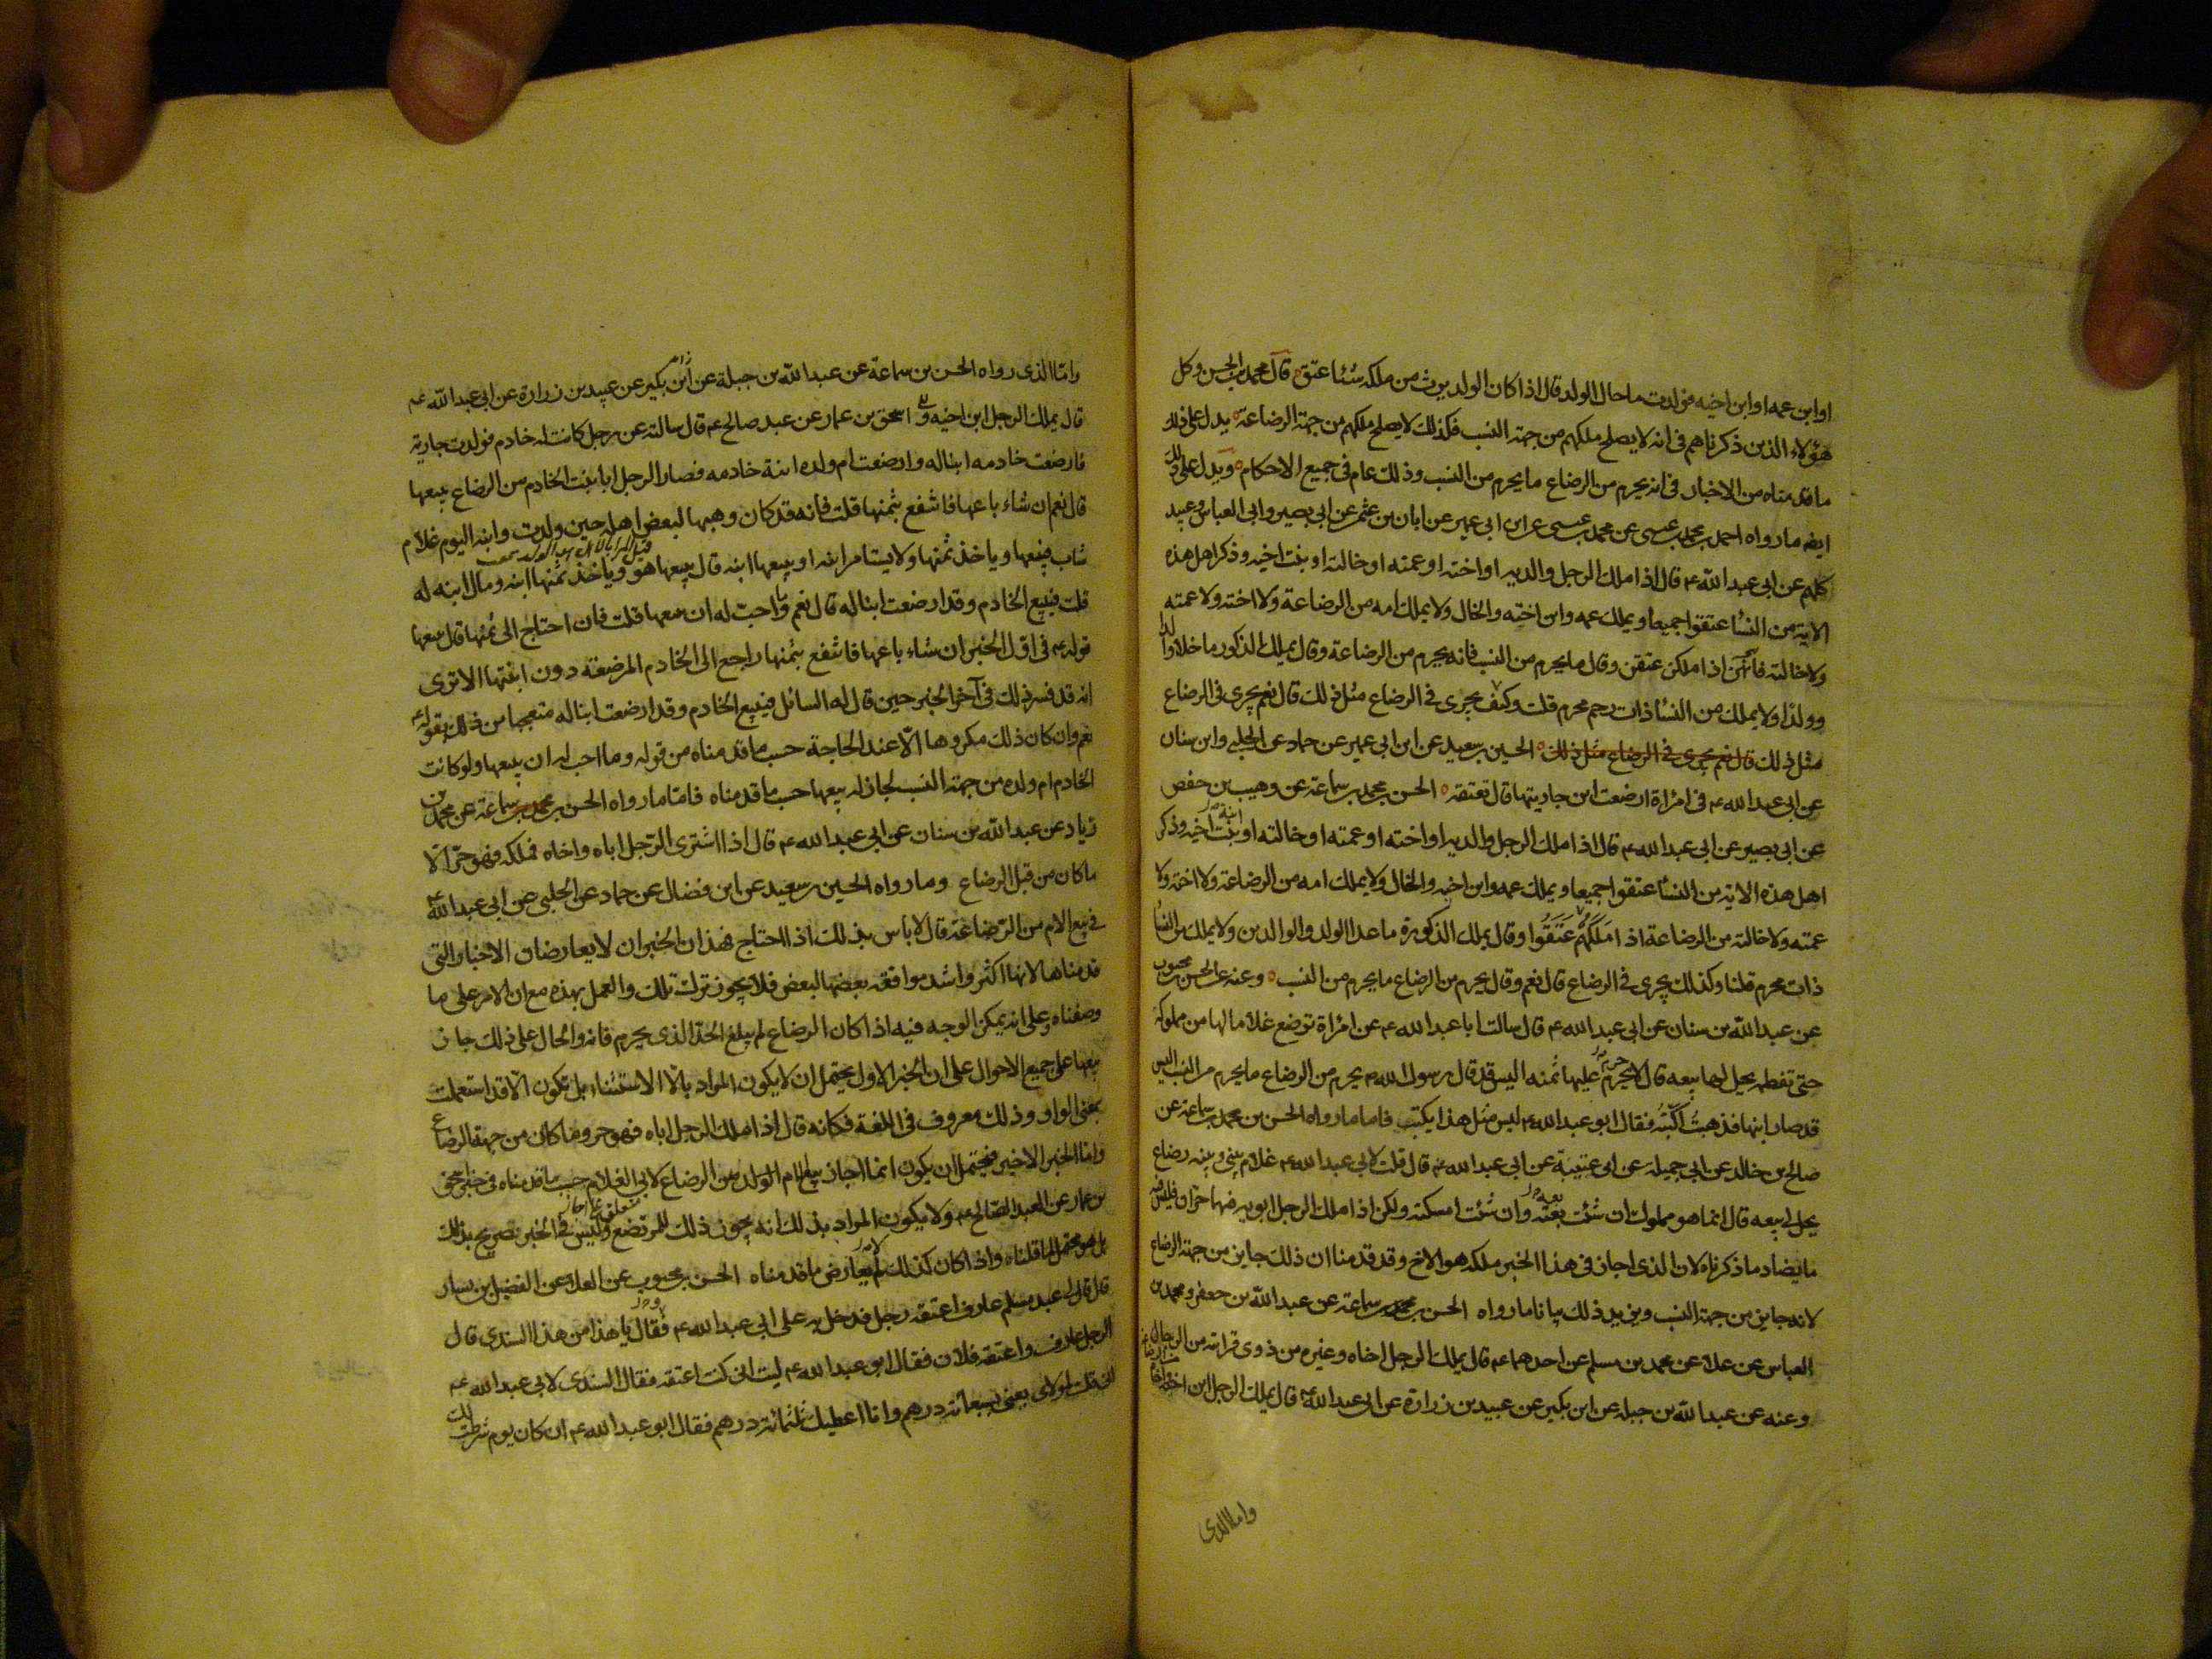 او ابن عمه او ابن اخيه فولدت ما حال الولد قال اذا كان الولد يرث من ملكه شيئا عتق قال محمد بن الحسن وكل
هؤلاء الذين ذكرناهم في انه لا يصلح ملكهم من جهة النسب فكذلك لا يصلح ملكهم من جهة الرضاعة يدل على ذلك
ما قدمناه من الاخبار في انه يحرم من الرضاع ما يحرم من النسب وذلك عام في جميع الاحكام ويدل على ذلك
ايضه ما رواه احمد بن محمد بن عيسى عن محمد بن عيسى عن ابن ابي عمير عن ابان بن عثمن عن ابي بصير وابي العباس وعبيد
كلهم عن ابي عبد الله ع قال اذا ملك الرجل والديه او اخته او عمته او خالته او بنت اخيه وذكر اهل هذه
الاية من النسا عتقوا جميعا ويملك عمه وابن اخيه والخال ولا يملك امه من الرضاعة ولا اخته ولا عمته
ولا خالته فانهن اذا ملكن عتقن وقال ما يحرم من النسب فانه يحرم من الرضاعة وقال يملك الذكور ما خلا والدا
وولدا ولا يملك من النسا ذات رحم محرم قلت وكيف يجرى في الرضاع مثل ذلك قال نعم يجرى في الرضاع
مثل ذلك قال نعم يجرى في الرضاع مثل ذلك الحسين بن سعيد عن ابن ابي عمير عن حماد عن الحلبي وابن سنان
عن ابي عبد الله ع في امراة ارضعت ابن جاريتها قال تعتقه الحسن بن محمد بن سماعة عن وهيب بن حفص
عن ابي بصير عن ابي عبد الله ع قال اذا ملك الرجل والديه او اخته او عمته او خالته او بنت اخيه وذكر
اهل هذه الاية من النسا عتقوا جميعا ويملك عمه وابن اخيه والخال ولا يملك امه من الرضاعة ولا اخته ولا
عمته ولا خالته من الرضاعة اذا ملكهم عتقوا وقال يملك الذكورة ما عدا الولد والوالدين ولا يملك من النسا
ذات محرم قلنا وكذلك يجرى في الرضاع قال نعم وقال يحرم من الرضاع ما يحرم من النسب وعنه عن الحسن بن محبوب
عن عبد الله بن سنان عن ابي عبد الله ع قال سالت ابا عبد الله ع عن امراة ترضع غلاما لها من مملوكة
حتى تفطمه يحل لها بيعه قال لا حرم عليها ثمنه اليس قد قال رسول الله ص يحرم من الرضاع ما يحرم من النسب اليس
قد صار ابنها فذهبت اكتبه فقال ابو عبد الله ع ليس مثل هذا يكتب فاما ما رواه الحسن بن محمد بن سماعة عن
صالح بن خالد عن ابي جميلة عن ابي عتيبة عن ابي عبد الله ع قال قلت لابي عبد الله ع غلام بيني وبينه رضاع
يحل لي بيعه قال انما هو مملوك ان شئت بعته وان شئت امسكته ولكن اذا ملك الرجل ابويه فهما حران فليس فيه
ما يضاد ما ذكرناه لان الذى اجاز في هذا الخبر ملكه هو الاخ وقد قدمنا ان ذلك جايز من جهة الرضاع
لانه جايز من جهة النسب ويزيد ذلك بيانا ما رواه الحسن بن محمد بن سماعة عن عبد الله بن جعفر ومحمد بن
العباس عن علاء عن محمد بن مسلم عن احدهما ع قال يملك الرجل اخاه وغيره من ذوى قرابته من الرجال
وعنه عن عبد الله بن جبلة عن ابن بكير عن عبيد بن زرارة عن ابي عبد الله ع قال يملك الرجل ابن اخته واخاه
واما الذى
واما الذى رواه الحسن بن سماعة عن عبد الله بن جبلة عن ابن بكير عن عبيد بن زرارة عن ابي عبد الله ع
قال يملك الرجل ابن اخيه اسحق بن عمار عن عبد صالح ع قال سالته عن رجل كانت له خادم فولدت جارية
فارضعت خادمه ابنا له وارضعت ام ولده ابنة خادمه فصار الرجل ابا بنت الخادم من الرضاع يبيعها
قال نعم ان شاء باعها فانتفع بثمنها قلت فانه قد كان وهبها لبعض اهله حين ولدت وابنه اليوم غلام
شاب فيبيعها وياخذ ثمنها ولا يستامر ابنه او يبيعها ابنه قال يبيعها هو وياخذ ثمنها ابنه ومال ابنه له
قلت فيبيع الخادم وقد ارضعت ابنا له قال نعم وما احب له ان يبيعها قلت فان احتاج الى ثمنها قال يبيعها
قوله ع في اول الخبر ان شاء باعها فانتفع بثمنها راجع الى الخادم المرضعة دون ابنتها الا ترى
انه قد فسر ذلك في آخر الخبر حين قال له السائل فيبيع الخادم وقد ارضعت ابنا له متعجبا من ذلك بقوله
نعم وان كان ذلك مكروها الا عند الحاجة حسب ما قدمناه من قوله وما احب له ان يبيعها ولو كانت
الخادم ام ولده من جهة النسب لجاز له بيعها حسب ما قدمناه فاما ما رواه الحسن بن محمد بن سماعة عن محمد بن
زياد عن عبد الله بن سنان عن ابي عبد الله ع قال اذا اشترى الرجل اباه واخاه فملكه فهو حر الا
ما كان من قبل الرضاع وما رواه الحسين بن سعيد عن ابن فضال عن حماد عن الحلبي عن ابي عبد الله ع
في بيع الام من الرضاعة قال لا باس بذلك اذا احتاج فهذان الخبران لا يعارضان الاخبار التى
قدمناها لانها اكثر واشد موافقة بعضها لبعض فلا يجوز ترك تلك والعمل بهذه مع ان الامر على ما
وصفناه وعلى انه يمكن الوجه فيه اذا كان الرضاع لم يبلغ الحد الذى يحرم فانه والحال على ذلك جاز
بيعها على جميع الاحوال على ان الخبر الاول يحتمل ان لا يكون المراد بالا الاستثناء بل تكون الا قد استعملت
بمعنى الواو وذلك معروف في اللغة فكانه قال اذا ملك الرجل اباه فهو حر وما كان من جهة الرضاع
واما الخبر الاخير فيحتمل ان يكون انما اجاز بيع الام الولد من الرضاع لابي الغلام حسب ما قدمناه في خبر اسحق
بن عمار عن العبد الصالح ع ولا يكون المراد بذلك انه يجوز ذلك للمرتضع وليس في الخبر تصريح بذلك
بل هو محتمل لما قلناه واذا كان كذلك لم يعارض ما قدمناه الحسن بن محبوب عن العلاء عن الفضيل بن يسار
قال قال لي عبد مسلم عارف اعتقه رجل فدخل به على ابي عبد الله ع فقال يا هذا من هذا السندى قال
الرجل عارف واعتقه فلان فقال ابو عبد الله ع ليت انى كنت اعتقه فقال السندى لابي عبد الله ع
انى قلت لمولاى بعنى بسبعمائة درهم وانا اعطيك ثلثمائة درهم فقال ابو عبد الله ع ان كان يوم شرطت لك